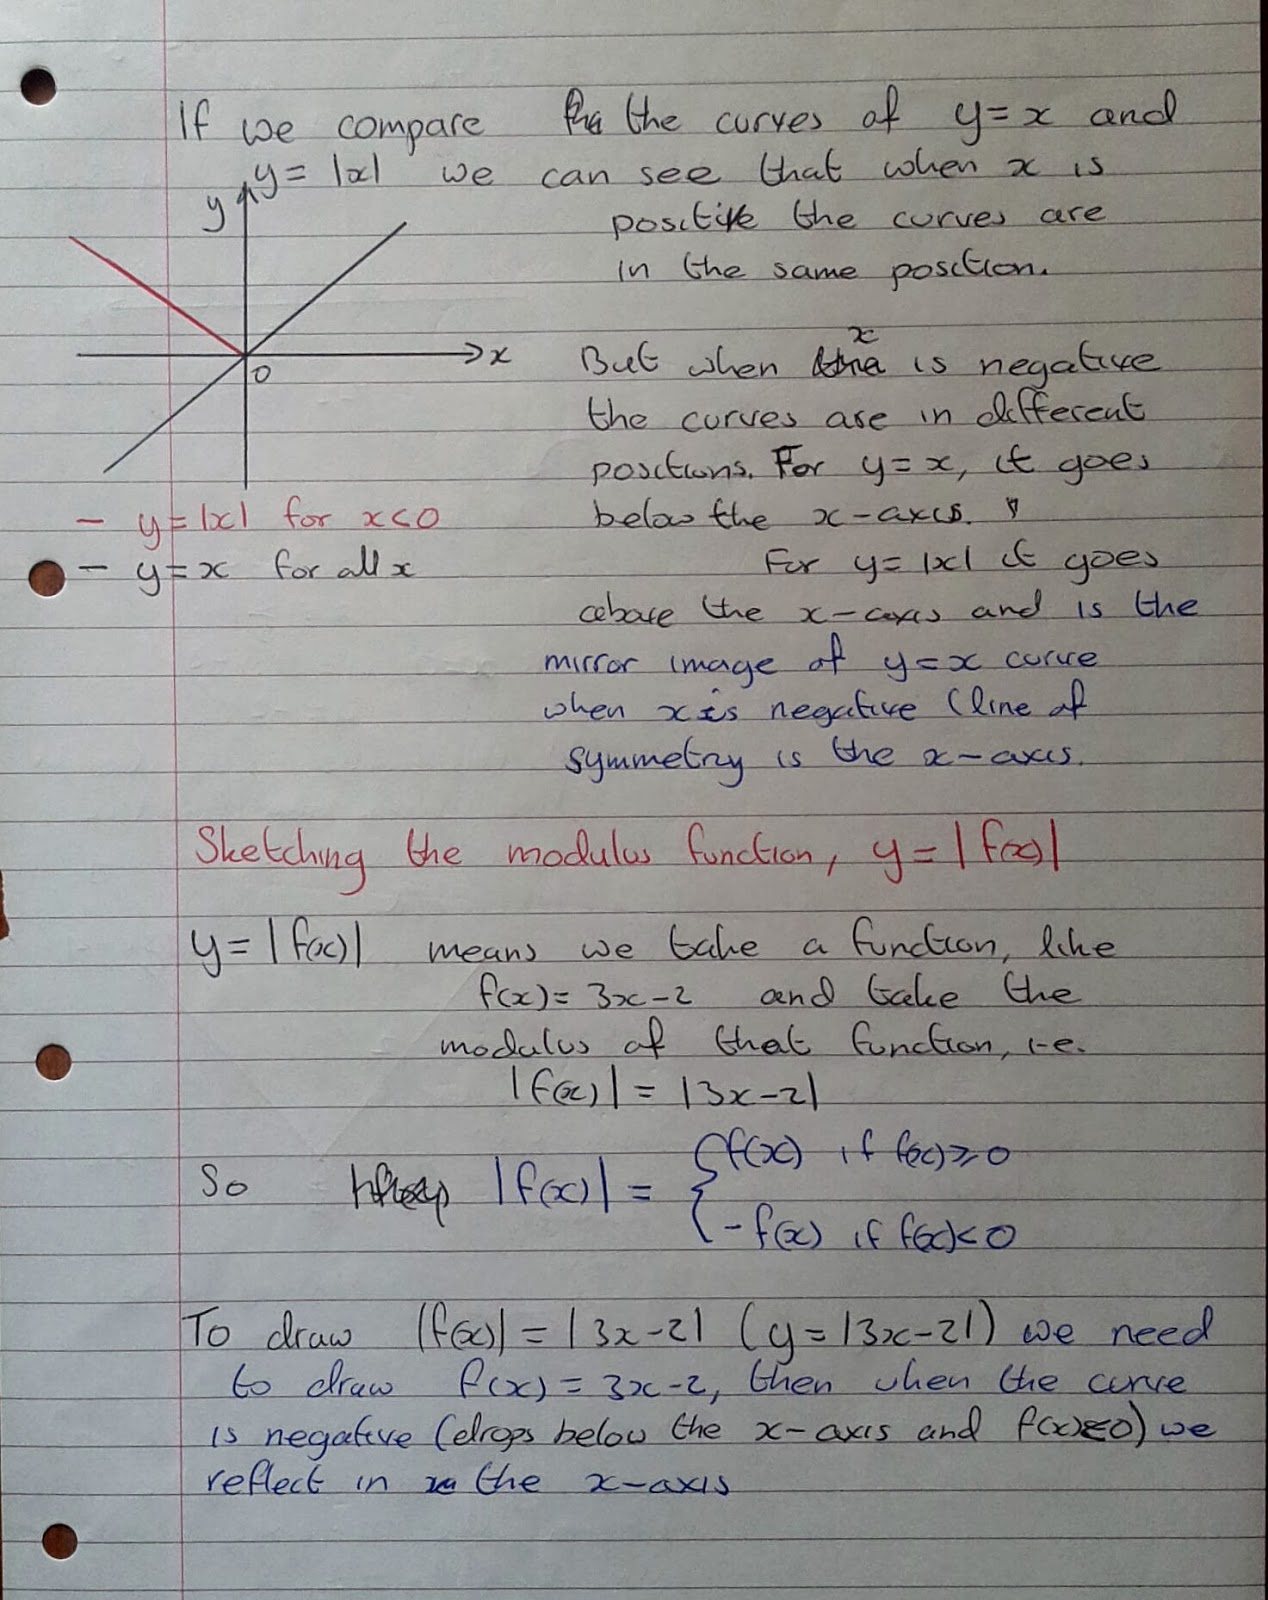 If we compare the curves of y=x and
y=|x| we can see that when x is
positive the curves are
in the same position.
y
x
0
But when x is negative
the curves are in different
positions. For y=x, it goes
below the x-axis.
- y=|x| for x<0
- y=x for all x
For y=|x| it goes
above the x-axis and is the
mirror image of y=x curve
when x is negative (line of
symmetry is the x-axis.
Sketching the modulus function, y=|f(x)|
y=|f(x)| means we take a function, like
f(x)=3x-2 and take the
modulus of that function, i-e.
|f(x)|=|3x-2|
So |f(x)| = { f(x) if f(x)≥0
-f(x) if f(x)<0
To draw |f(x)|=|3x-2| (y=|3x-2|) we need
to draw f(x)=3x-2, then when the curve
is negative (drops below the x-axis and f(x)<0) we
reflect in the x-axis